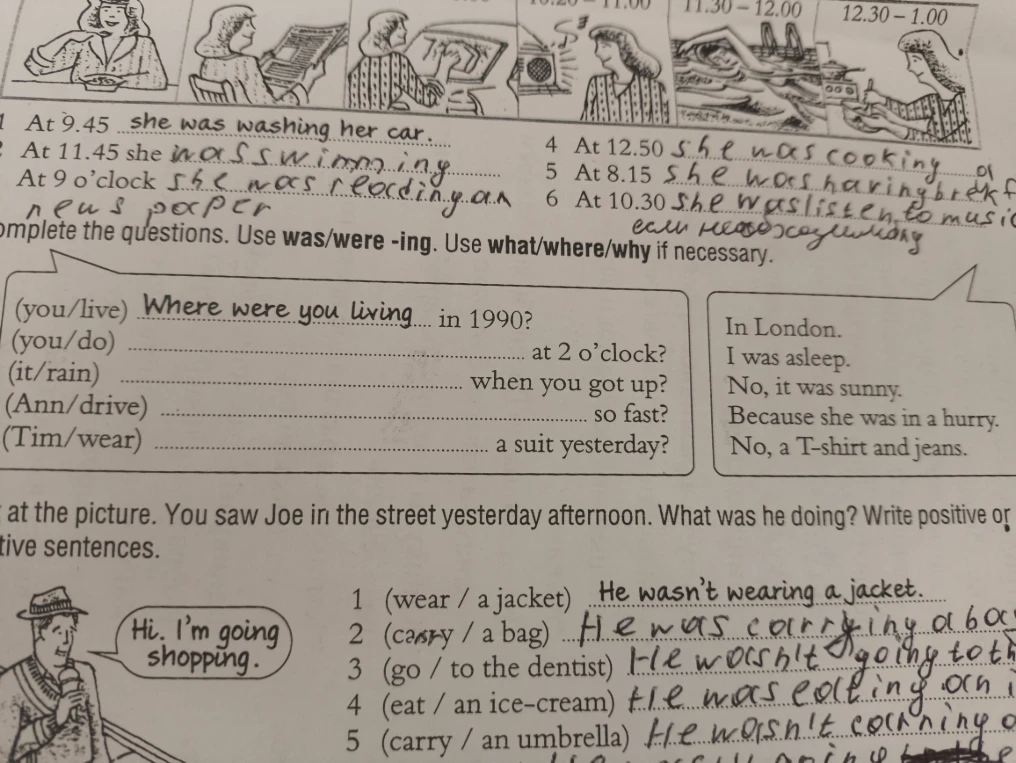 11.30 – 12.00
12.30 – 1.00
1 At 9.45 she was washing her car.
At 11.45 she was swimming
At 9 o'clock she was reading an
news paper
4 At 12.50 she was cooking
5 At 8.15 she was having brekf
6 At 10.30 she was listen, to music
если необходимому
omplete the questions. Use was/were -ing. Use what/where/why if necessary.
(you/live) Where were you living in 1990?
(you/do) at 2 o'clock?
(it/rain) when you got up?
(Ann/drive) so fast?
(Tim/wear) a suit yesterday?
In London.
I was asleep.
No, it was sunny.
Because she was in a hurry.
No, a T-shirt and jeans.
at the picture. You saw Joe in the street yesterday afternoon. What was he doing? Write positive or
tive sentences.
Hi. I'm going
shopping.
1 (wear / a jacket) He wasn't wearing a jacket.
2 (carry / a bag) He was carrying a bag
3 (go / to the dentist) He wasn't going to th
4 (eat / an ice-cream) He was eating an i
5 (carry / an umbrella) He wasn't carrning a